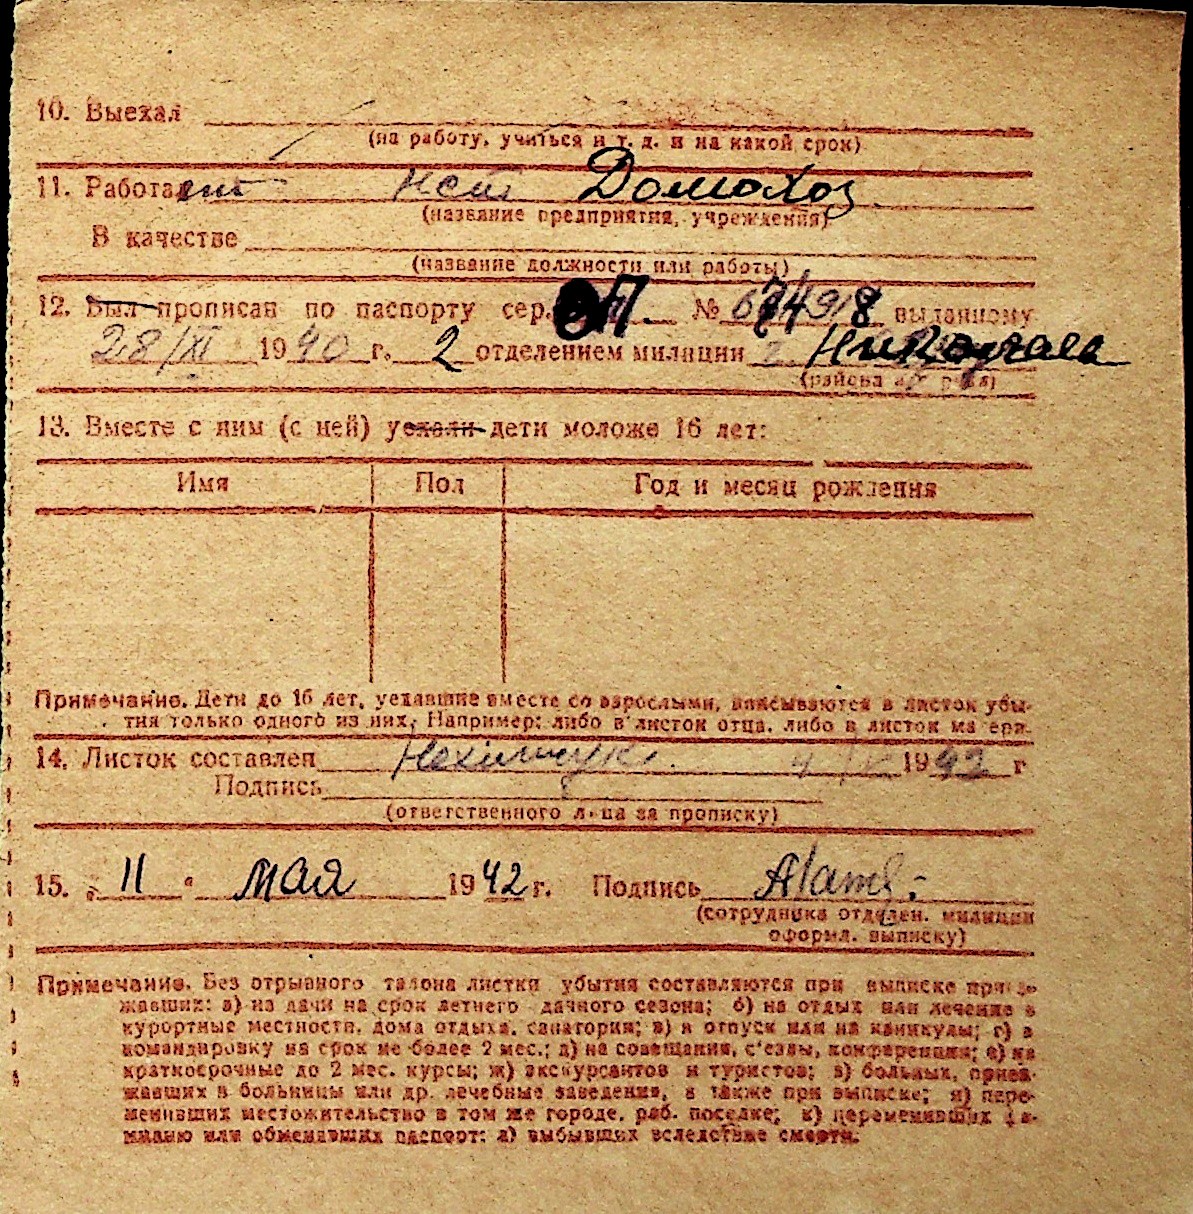 10. Выехал
(на работу, учиться и т. д. и на какой срок)
11. Работает нет Домохоз
(название предприятия, учреждения)
В качестве
(название должности или работы)
12. Был прописан по паспорту сер. № 674918 выданному
28/XI 1940 г. 2 отделением милиции г. Николаева
(района)
13. Вместе с ним (с ней) уехали дети моложе 16 лет:
Имя Пол Год и месяц рождения
Примечание. Дети до 16 лет, уехавшие вместе со взрослыми, вписываются в листок убы-
тия только одного из них. Например: либо в листок отца, либо в листок матери.
14. Листок составлен 1942 г
Подпись
(ответственного лица за прописку)
15. „11" мая 1942 г. Подпись
(сотрудника отделен. милиции
оформл. выписку)
Примечание. Без отрывного талона листки убытия составляются при выписке приез-
жавших: а) из дачи на срок летнего дачного сезона; б) на отдых или лечение в
курортные местности, дома отдыха, санатория; в) в отпуск или на каникулы; г) в
командировку на срок не более 2 мес.; д) на совещания, с'езды, конференции; е) на
краткосрочные до 2 мес. курсы; ж) экскурсантов и туристов; з) больных, приез-
жавших в больницы или др. лечебные заведения, а также при выписке; и) пере-
менивших местожительство в том же городе, раб. поселке; к) переменивших фа-
милию или обменявших паспорт; л) выбывших вследствие смерти.